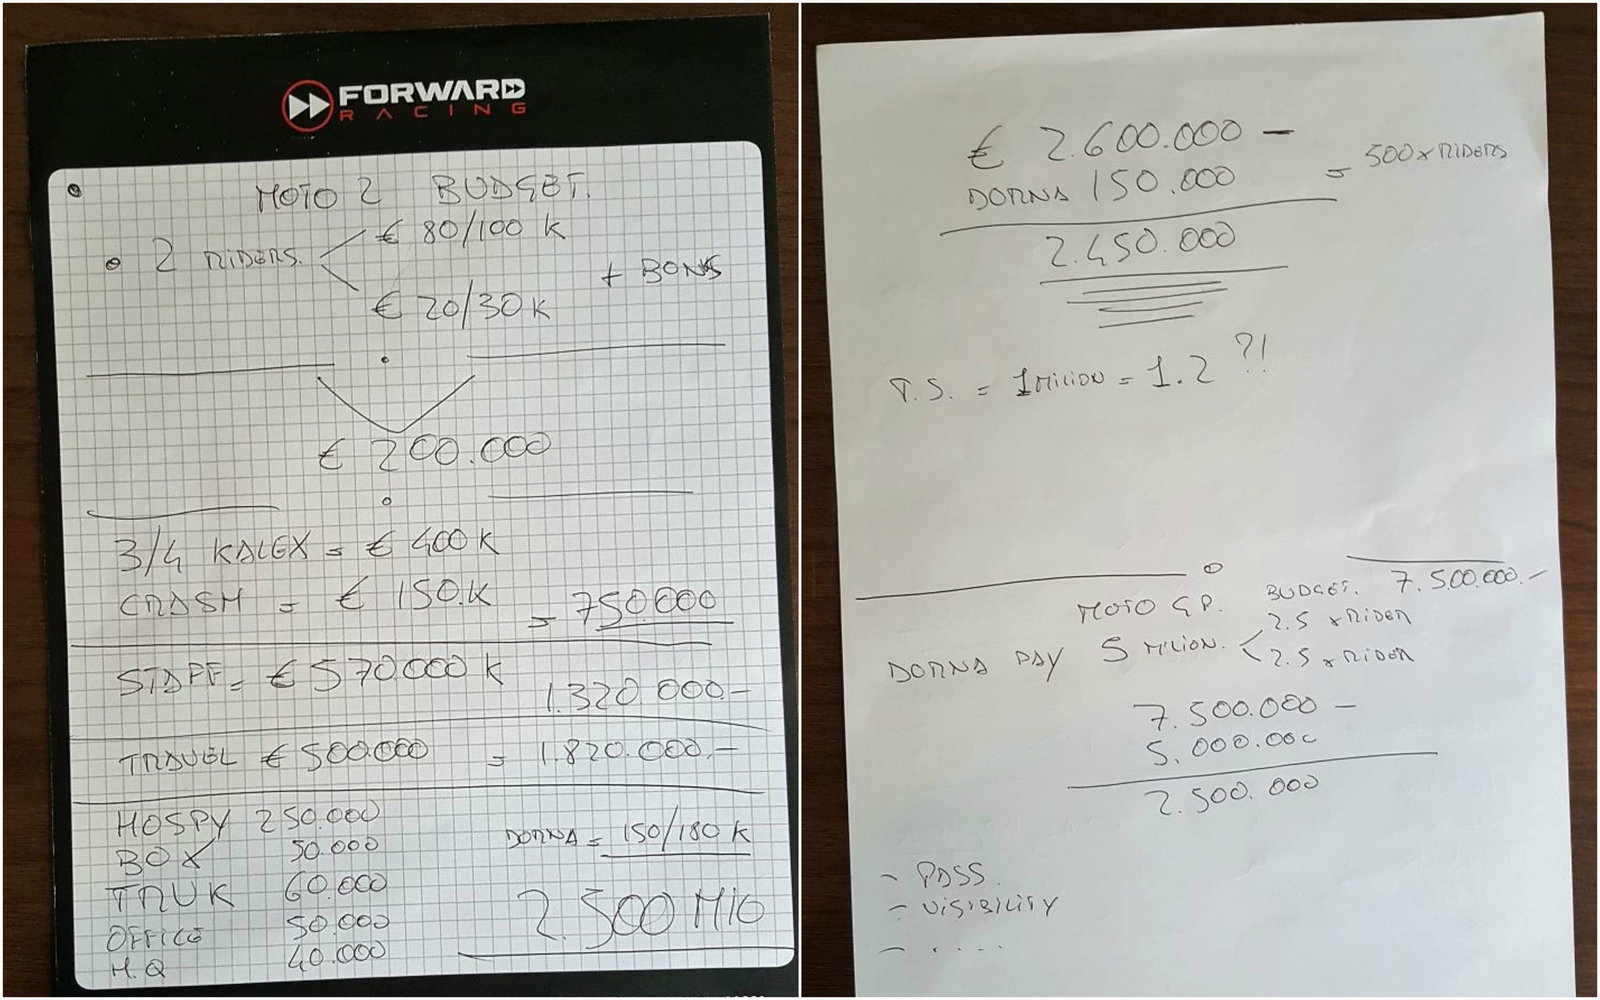 FORWARD
RACING
MOTO 2 BUDGET.
2 RIDERS. € 80/100 K
€ 20/30 K
+ BONUS
€ 200.000
3/4 KALEX = € 400 K
CRASH = € 150.K = 750.000
STAFF = € 570.000 K
1.320.000.-
TRAVEL € 500.000 = 1.820.000.-
HOSPY 250.000
BOX 50.000
TRUK 60.000
OFFICE 50.000
H.Q 40.000
DORNA = 150/180 K
2.500 MIO
€ 2.600.000 -
DORNA 150.000
= 500 x RIDERS
2.450.000
T.S. = 1 MILION = 1.2 ?!
MOTO G.P. BUDGET. 7.500.000.-
DORNA PAY 5 MILION. < 2.5 x RIDER
2.5 x RIDER
7.500.000 -
5.000.000
2.500.000
- PASS.
- VISIBILITY
- . . . .